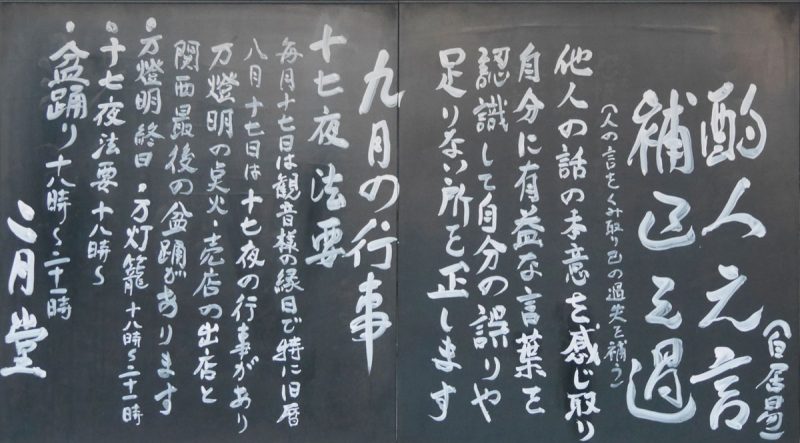 酌人之言
(白居易)
補己之過
(人の言をくみ取り己の過失を補う)
他人の話の本意を感じ取り
自分に有益な言葉を
認識して自分の誤りや
足りない所を正します
九月の行事
十七夜法要
毎月十七日は観音様の縁日で特に旧暦
八月十七日は十七夜の行事があり
万燈明の点火・売店の出店と
関西最後の盆踊があります
・万燈明終日・万灯籠十八時〜二十一時
・十七夜法要十八時〜
・盆踊り十八時〜二十一時
二月堂